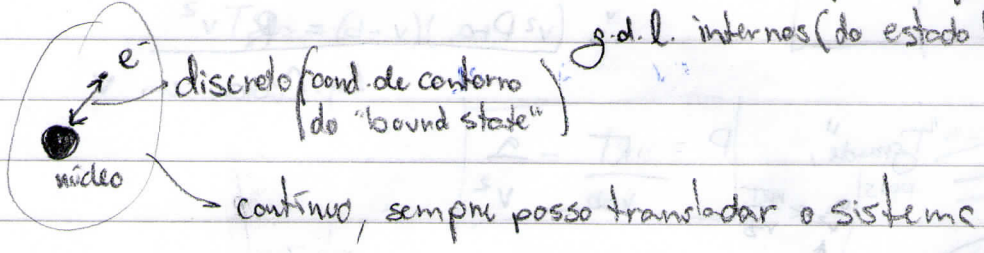 g.d.l. internos (do estado
e⁻
discreto (cond. de contorno
do "bound state")
núcleo
contínuo, sempre posso transladar o sistema